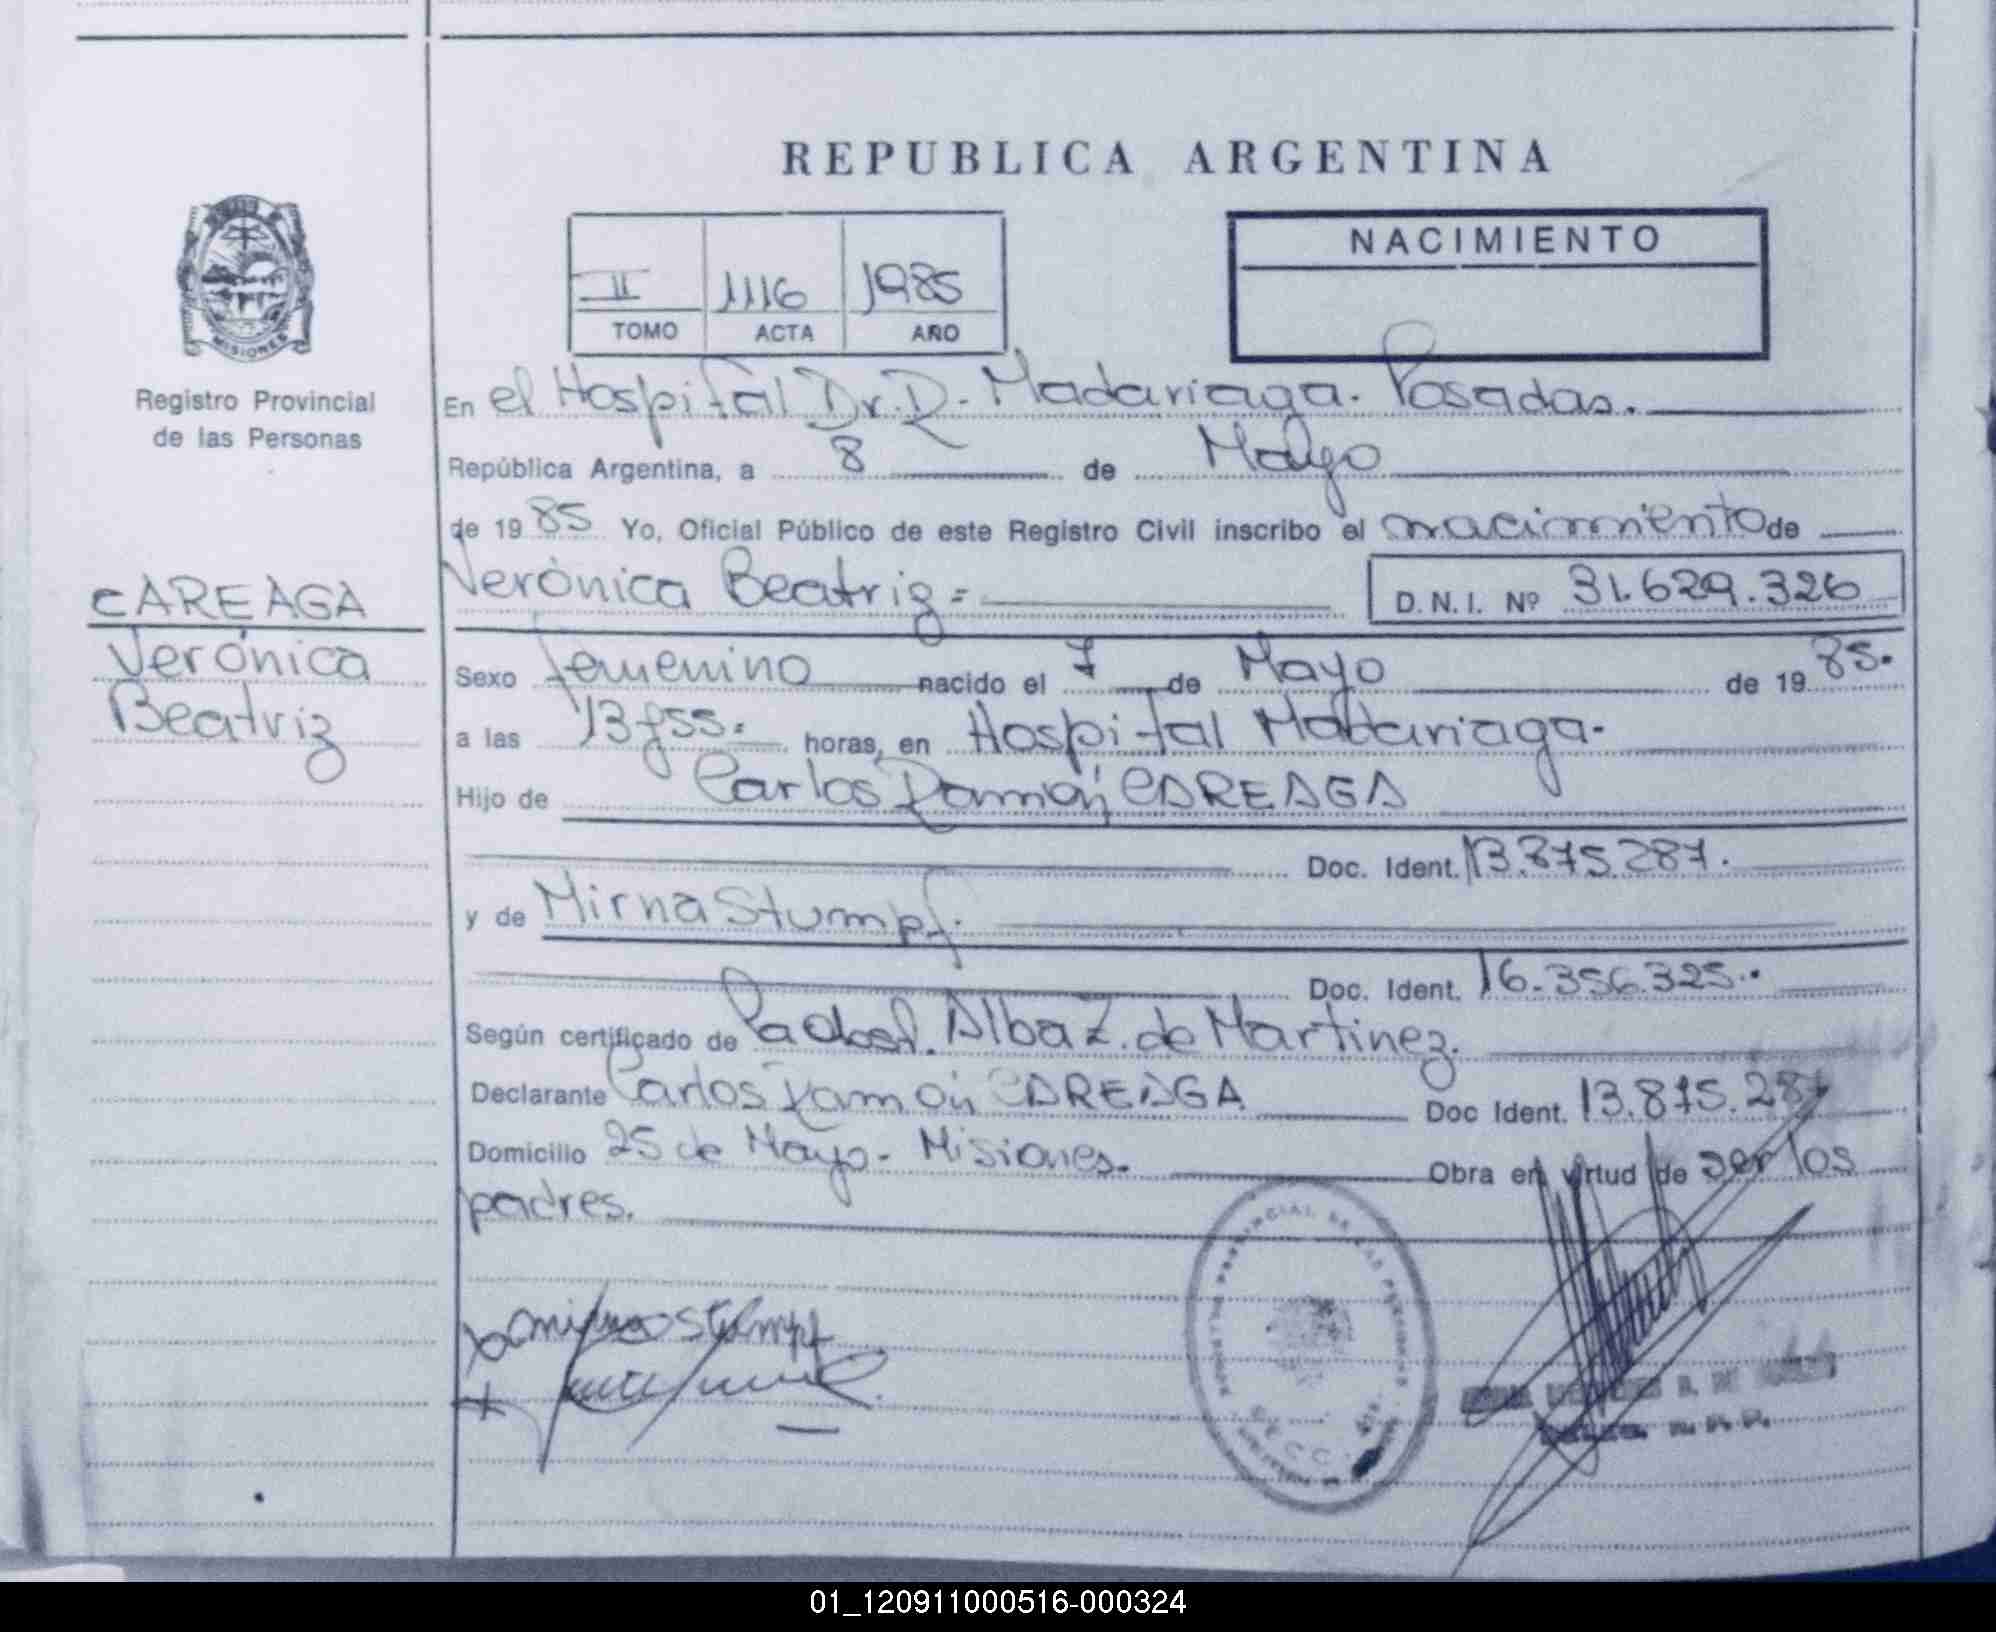 REPUBLICA ARGENTINA
II 1116 1985
TOMO ACTA AÑO
NACIMIENTO
MISIONES
Registro Provincial
de las Personas
CAREAGA
Verónica
Beatriz
En el Hospital Dr. R. Madariaga. Posadas.
República Argentina, a 8 de Mayo
de 1985 Yo, Oficial Público de este Registro Civil inscribo el nacimiento de
Verónica Beatriz= D.N.I. Nº 31.629.326
Sexo femenino nacido el 7 de Mayo de 1985.
a las 13y55. horas, en Hospital Madariaga.
Hijo de Carlos Ramón CAREAGA
Doc. Ident. 13.875.287.
y de Mirna Stumpf.
Doc. Ident. 16.356.325.
Según certificado de Alba Z. de Martinez.
Declarante Carlos Ramón CAREAGA Doc Ident. 13.875.287
Domicilio 25 de Mayo - Misiones. Obra en virtud de ser los
padres.
mirna Stumpf
PROVINCIAL DE LAS PERSONAS
SECC.
01_120911000516-000324